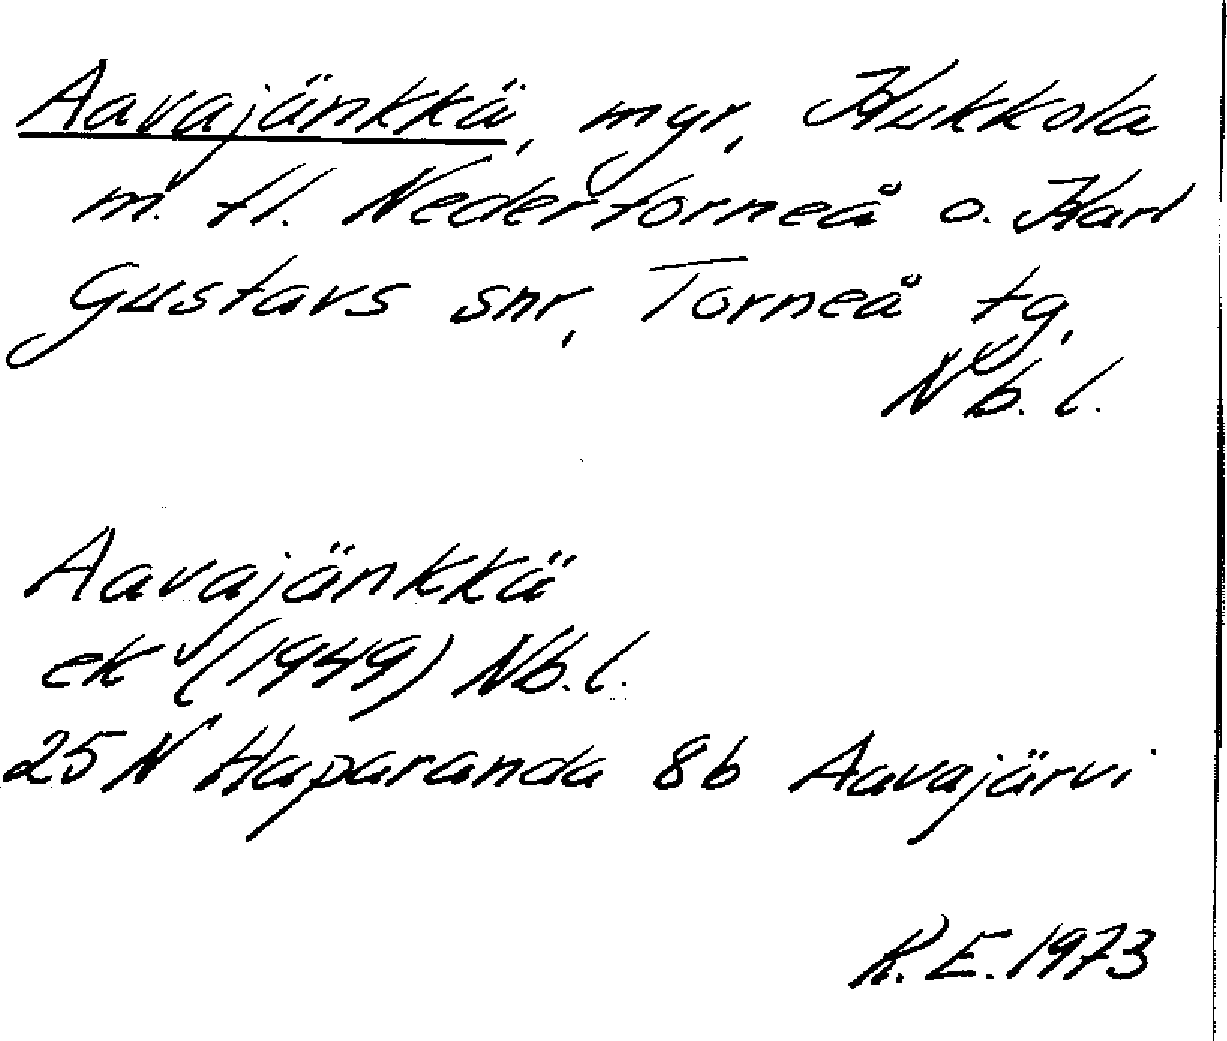 Aavajänkkä, myr, Kukkola
m. fl. Nedertorneå o. Karl
Gustavs snr, Torneå tg,
Nb. l.
Aavajänkkä
ek (1949) Nb. l.
25 N Haparanda 8b Aavajärvi
K. E. 1973